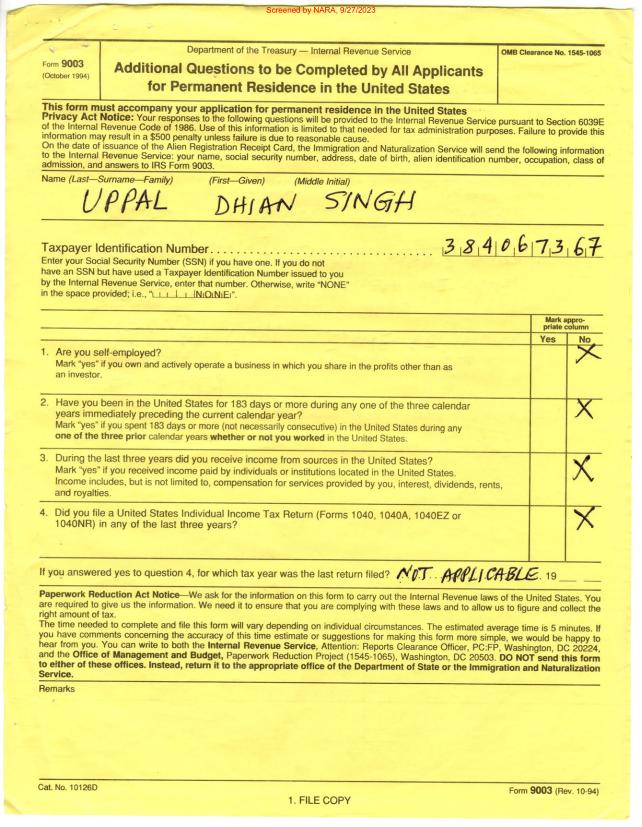 Screened by NARA, 9/27/2023
Form 9003
(October 1994)
Department of the Treasury — Internal Revenue Service
Additional Questions to be Completed by All Applicants
for Permanent Residence in the United States
OMB Clearance No. 1545-1065
This form must accompany your application for permanent residence in the United States
Privacy Act Notice: Your responses to the following questions will be provided to the Internal Revenue Service pursuant to Section 6039E
of the Internal Revenue Code of 1986. Use of this information is limited to that needed for tax administration purposes. Failure to provide this
information may result in a $500 penalty unless failure is due to reasonable cause.
On the date of issuance of the Alien Registration Receipt Card, the Immigration and Naturalization Service will send the following information
to the Internal Revenue Service: your name, social security number, address, date of birth, alien identification number, occupation, class of
admission, and answers to IRS Form 9003.
Name (Last—Surname—Family) (First—Given) (Middle Initial)
UPPAL DHIAN SINGH
Taxpayer Identification Number 384067367
Enter your Social Security Number (SSN) if you have one. If you do not
have an SSN but have used a Taxpayer Identification Number issued to you
by the Internal Revenue Service, enter that number. Otherwise, write "NONE"
in the space provided; i.e., "| | | | |N|O|N|E|".
Mark appro-
priate column
Yes No
1. Are you self-employed? X
Mark "yes" if you own and actively operate a business in which you share in the profits other than as
an investor.
2. Have you been in the United States for 183 days or more during any one of the three calendar X
years immediately preceding the current calendar year?
Mark "yes" if you spent 183 days or more (not necessarily consecutive) in the United States during any
one of the three prior calendar years whether or not you worked in the United States.
3. During the last three years did you receive income from sources in the United States? X
Mark "yes" if you received income paid by individuals or institutions located in the United States.
Income includes, but is not limited to, compensation for services provided by you, interest, dividends, rents,
and royalties.
4. Did you file a United States Individual Income Tax Return (Forms 1040, 1040A, 1040EZ or X
1040NR) in any of the last three years?
If you answered yes to question 4, for which tax year was the last return filed? NOT APPLICABLE. 19__ __
Paperwork Reduction Act Notice—We ask for the information on this form to carry out the Internal Revenue laws of the United States. You
are required to give us the information. We need it to ensure that you are complying with these laws and to allow us to figure and collect the
right amount of tax.
The time needed to complete and file this form will vary depending on individual circumstances. The estimated average time is 5 minutes. If
you have comments concerning the accuracy of this time estimate or suggestions for making this form more simple, we would be happy to
hear from you. You can write to both the Internal Revenue Service, Attention: Reports Clearance Officer, PC:FP, Washington, DC 20224,
and the Office of Management and Budget, Paperwork Reduction Project (1545-1065), Washington, DC 20503. DO NOT send this form
to either of these offices. Instead, return it to the appropriate office of the Department of State or the Immigration and Naturalization
Service.
Remarks
Cat. No. 10126D
1. FILE COPY
Form 9003 (Rev. 10-94)